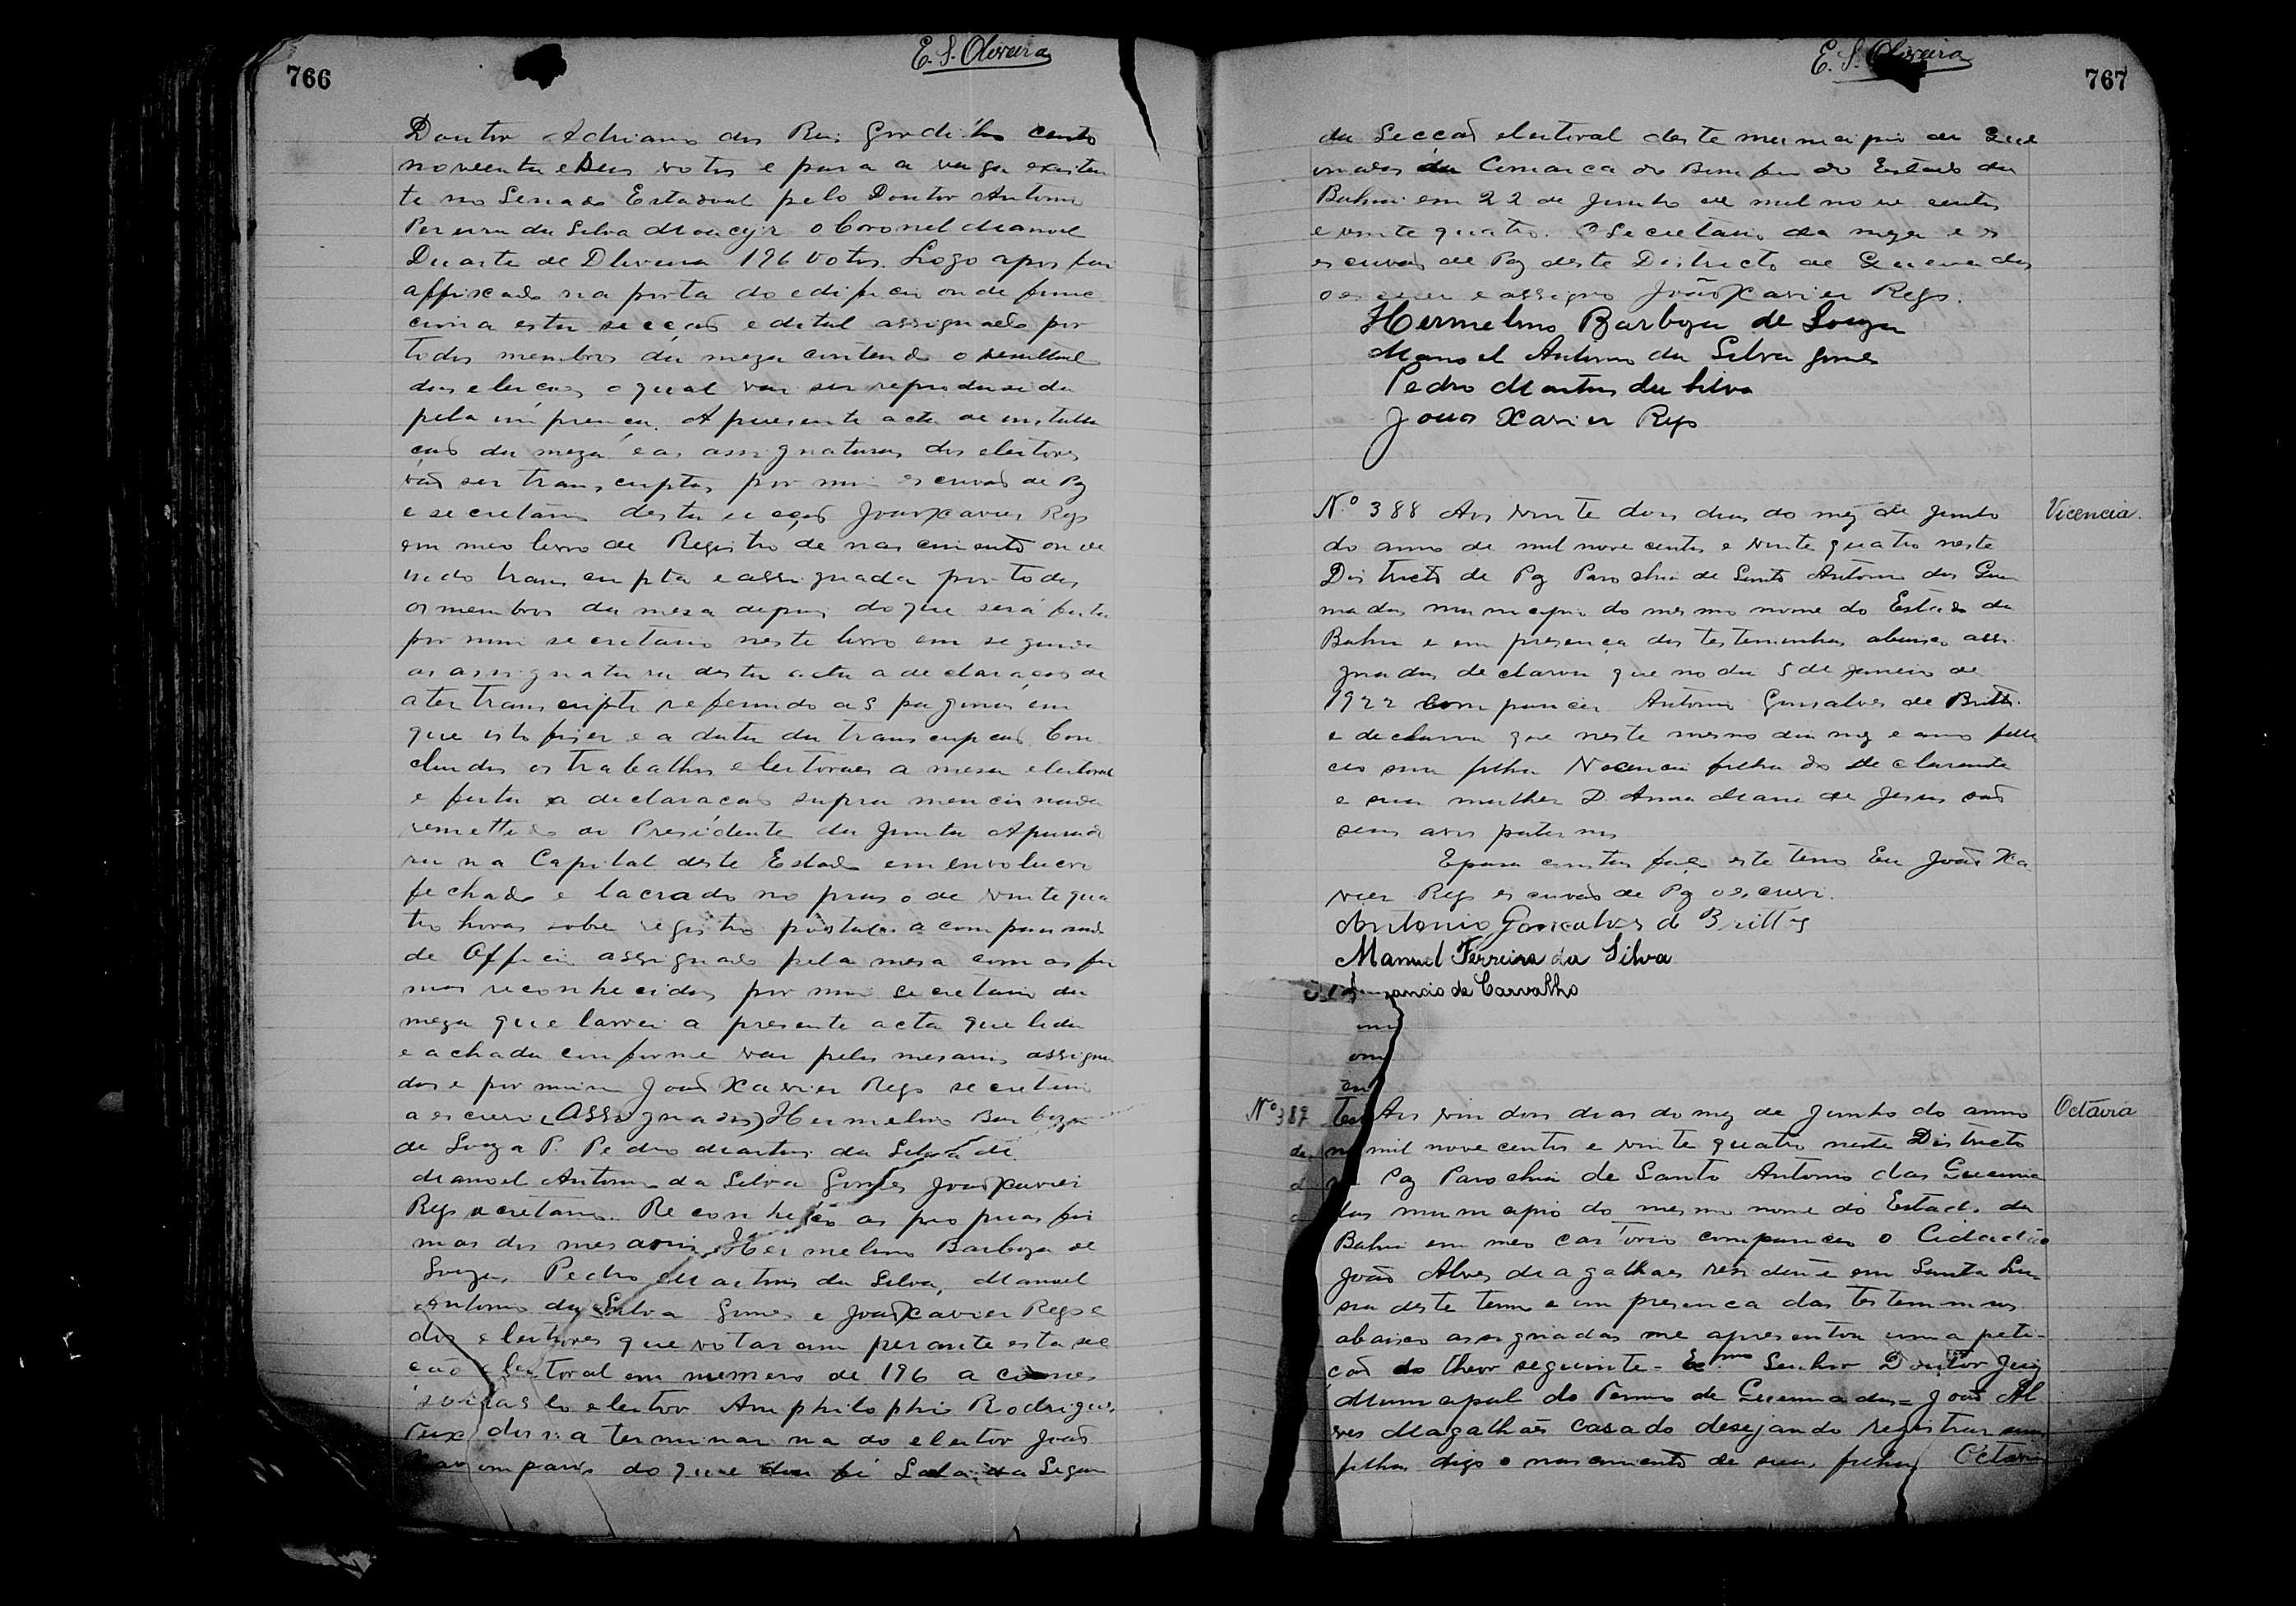 766
E. S. Oliveira
Doutor Adriano dos Reis Gordilho cento
noventa e seis votos e para a vaga existen
te no Senado Estadoal pelo Doutor Antonio
Pereira da Silva Moacyr o Coronel Manoel
Duarte de Oliveira 196 votos. Logo apos foi
affixado na porta do edificio onde func
ciona esta secção edital assignado por
todos membros da meza contendo o resultado
das eleições o qual vai ser reprodusida
pela imprença. A presente acta de installa
ção da meza e as assignaturas dos eleitores
vão ser transcriptas por mim escrivão de Paz
e secretario desta secção João Xavier Rego
em meo livro de Registro de nascimento onde
sendo transcripta e assignada por todos
os membros da mesa depois do que será feita
por mim secretario neste livro em seguida
as assignatura desta acta a declaração de
a ter transcripto referindo as paginas em
que isto fizer e a data da transcripção. Con
cluidos os trabalhos eleitoraes a mesa eleitoral
e feita a declaração supra mencionada
remettido ao Presidente da Junta Apurado
ra na Capital deste Estado em envolucro
fechado e lacrado no praso de vinte qua
tro horas sobre registro postal acompanhado
de Officio assignado pela mesa com as fir
mas reconhecidas por mim secretario da
meza que lavrei a presente acta que lida
e achada conforme vae pelos mesarios assigna
dos e por mim João Xavier Rego secretario
a escrevi (Assignados) Hermelino Barboza
de Souza P. Pedro Martins da Silva
Manoel Antonio da Silva Gomes João Xavier
Rego secretario. Reconheço as proprias fir
mas dos mesarios Hermelino Barboza de
Souza, Pedro Martins da Silva, Manoel
Antonio da Silva Gomes e João Xavier Rego e
dos eleitores que votaram perante esta sec
ção eleitoral em numero de 196 a
lo eleitor Amphilophio Rodrigues
a terminar na do eleitor João
do que dou fé Sala da Segun
E. S. Oliveira
767
da Secção eleitoral deste municipio de Quei
madas da Comarca do Bomfim do Estado da
Bahia em 22 de Junho de mil nove centos
e vinte quatro. O Secretario da meza e o
escrivão de Paz deste Districto de Queimadas
o escrevi e assigno João Xavier Rego.
Hermelino Barboza de Souza
Manoel Antonio da Silva Gomes
Pedro Martins da Silva
João Xavier Rego
N.º 388 Aos vinte dois dias do mez de Junho
do anno de mil nove centos e vinte quatro neste
Districto de Paz Parochia de Santo Antonio das Quei
madas municipio do mesmo nome do Estado da
Bahia e em presença das testemunhas abaixo assi
gnadas declarou que no dia 5 de Janeiro de
1922 compareceu Antonio Gonsalves de Britto
e declarou que neste mesmo dia mez e anno falle
ceo sua filha Vicencia filha do declarante
e sua mulher D. Anna Maria de Jesus são
seus avos paternos
E para constar faço este termo Eu João Xa
vier Rego escrivão de Paz o escrevi.
Antonio Gonçalves de Brittos
Manuel Ferreira da Silva
de Carvalho
Vicencia.
Nº 387 Aos vin dois dias do mez de Junho do anno
de mil nove centos e vinte quatro neste Districto
de Paz Parochia de Santo Antonio das Queima
das municipio do mesmo nome do Estado da
Bahia em meo cartorio compareceo o Cidadão
João Alves Magalhaes residente em Santa Lu
sia deste termo e em presenca das testemunhas
abaixo assignadas me apresentou uma peti-
ção do theor seguinte - Exmo Senhor Doutor Juiz
Municipal do Termo de Queimadas = João Al
ves Magalhães casado desejando registrar sua
filha digo o nascimento de sua filha Octavia
Octavia